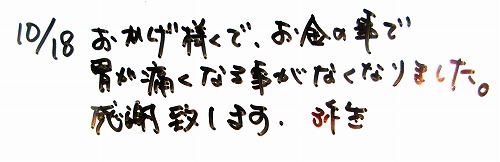 10/18 おかげ様で、お金の事で
胃が痛くなる事がなくなりました。
感謝致します。